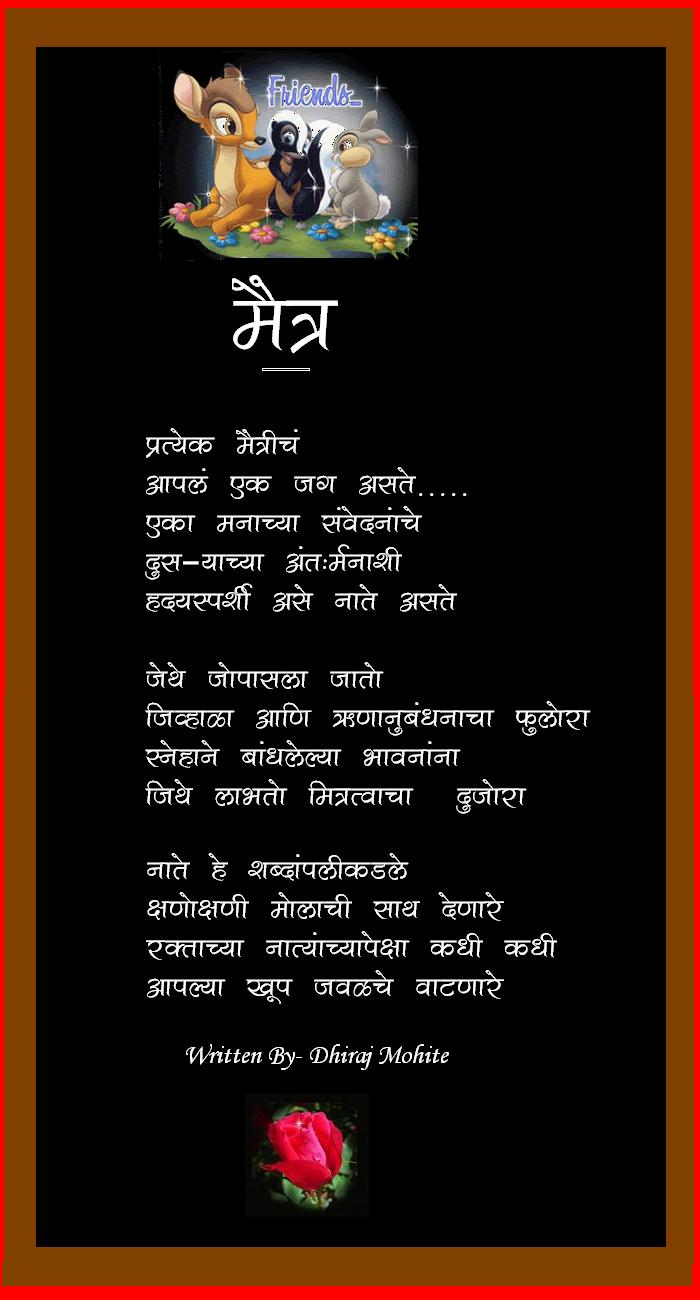 Friends...
मैत्र
प्रत्येक मैत्रीचं
आपलं एक जग असते.....
एका मनाच्या संवेदनांचे
दुस-याच्या अंतःर्मनाशी
हृदयस्पर्शी असे नाते असते
जेथे जोपासला जातो
जिव्हाळा आणि ऋणानुबंधनाचा फुलोरा
स्नेहाने बांधलेल्या भावनांना
जिथे लाभतो मित्रत्वाचा दुजोरा
नाते हे शब्दांपलीकडले
क्षणोक्षणी मोलाची साथ देणारे
रक्ताच्या नात्यांच्यापेक्षा कधी कधी
आपल्या खूप जवळचे वाटणारे
Written By- Dhiraj Mohite